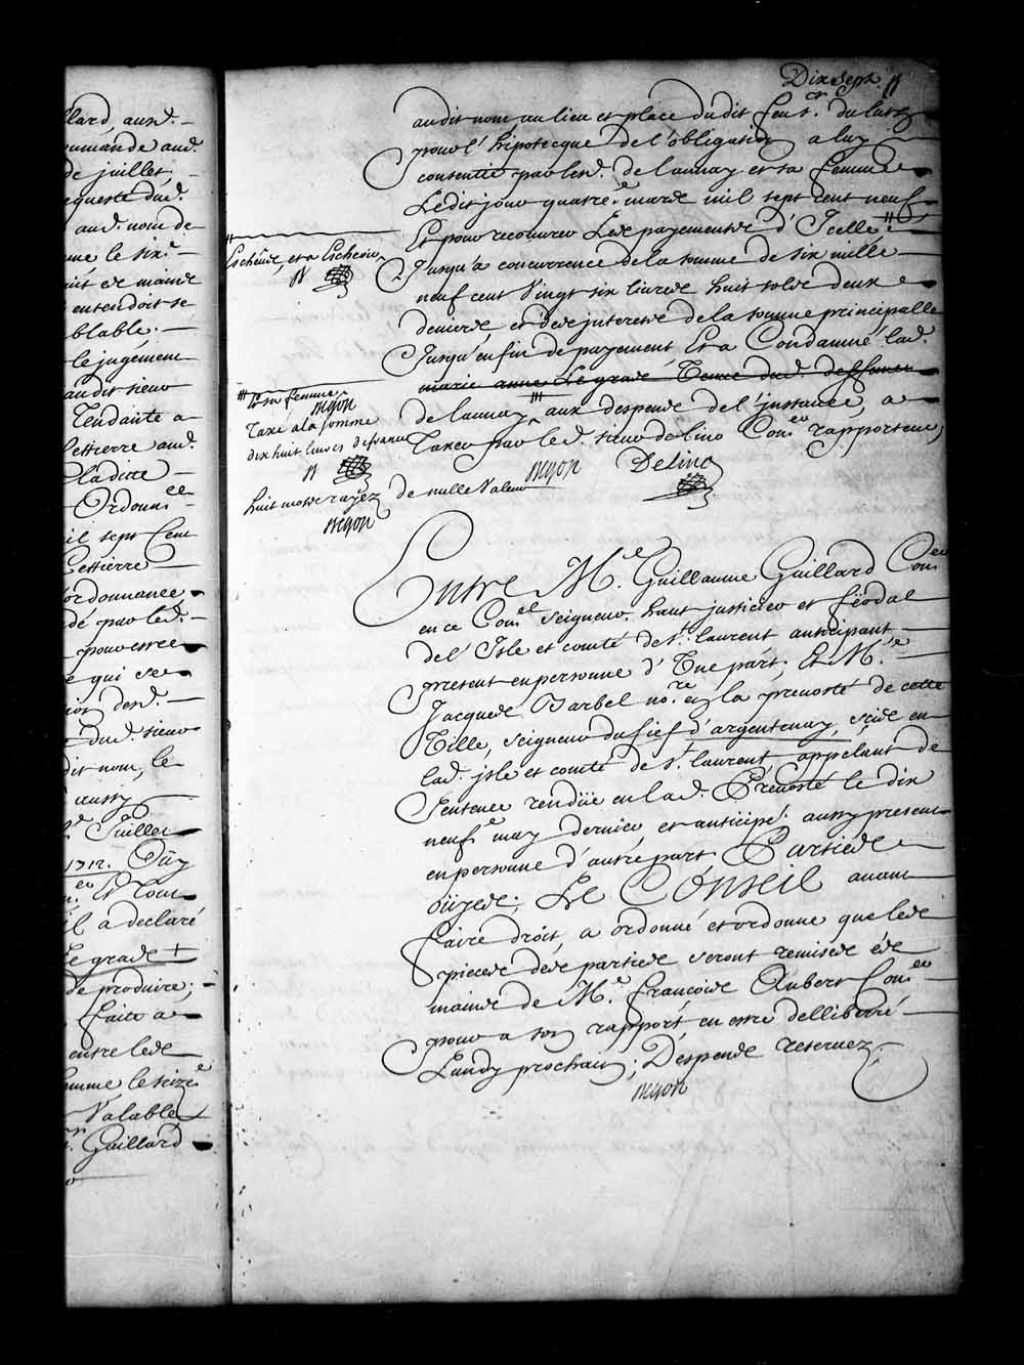 llard, aud.
de juillet,
requeste dud.
aud. nom de
me le six.e
ait ès mains
entendoit se
blable.
le jugement
audit sieur
Tendante a
Cettierre aud.
Ladite
Ordonnee
il sept Cent
Cettierre
ordonnance
dé par led.
pour estre
e qui se
dud. sieur
dit nom, le
aussy
Juillet
1712. Ouy
en. Et Tout
il a declaré
Le grade +
de produire;
faite a
entre lesd.
comme le seize
Valable
Gaillard
Dix Sept.
audit nom au lieu et place dudit feu s.r
pour l'hipotecque de l'obligation a luy
consentie par led. de launay et sa femme
Ledit jour quatre.e mars mil sept cent neuf
Et pour recouvrer Les payements d'Icelle
Jusqu'a concurrence de la somme de six mille
neuf cent Vingt six livres huit sols deux
deniers et des interests de la somme principalle
Jusqu'en fin de payement Et a Condamné lad.
marie anne Le grade Veuve dud. deffunct
de launay aux despens de l'instance, a
Taxer par le d. sieur de lino Con.er rapporteur,
Begon Delino
Escheüs, et a Escheoir
B
Et sa femme
Begon
Taxé a la somme
dix huit livres de france
B
huit mots rayez de nulle Valeur
Begon
Entre M.e Guillaume Gaillard Con.er
en ce Con.el seigneur haut justicier et féodal
de l'Isle et comté de s.t laurent anticipant
present en personne d'Une part; Et M.e
Jacques Barbel no.re en la prevosté de cette
Ville, seigneur du fief d'argentenay, scis en
lad. isle et comté de s.t laurent, appelant de
Sentence rendüe en lad. Prevosté le dix
neuf.e may dernier, et anticipé. aussy present
en personne d'autre part. Parties
oüyes; Le Conseil avant
faire droit, a ordonné et ordonne que les
pieces des parties seront remises ès
mains de M.e françois Aubert Con.er
pour a son rapport en estre delliberé
Lundy prochain; Despens reservez.
Begon